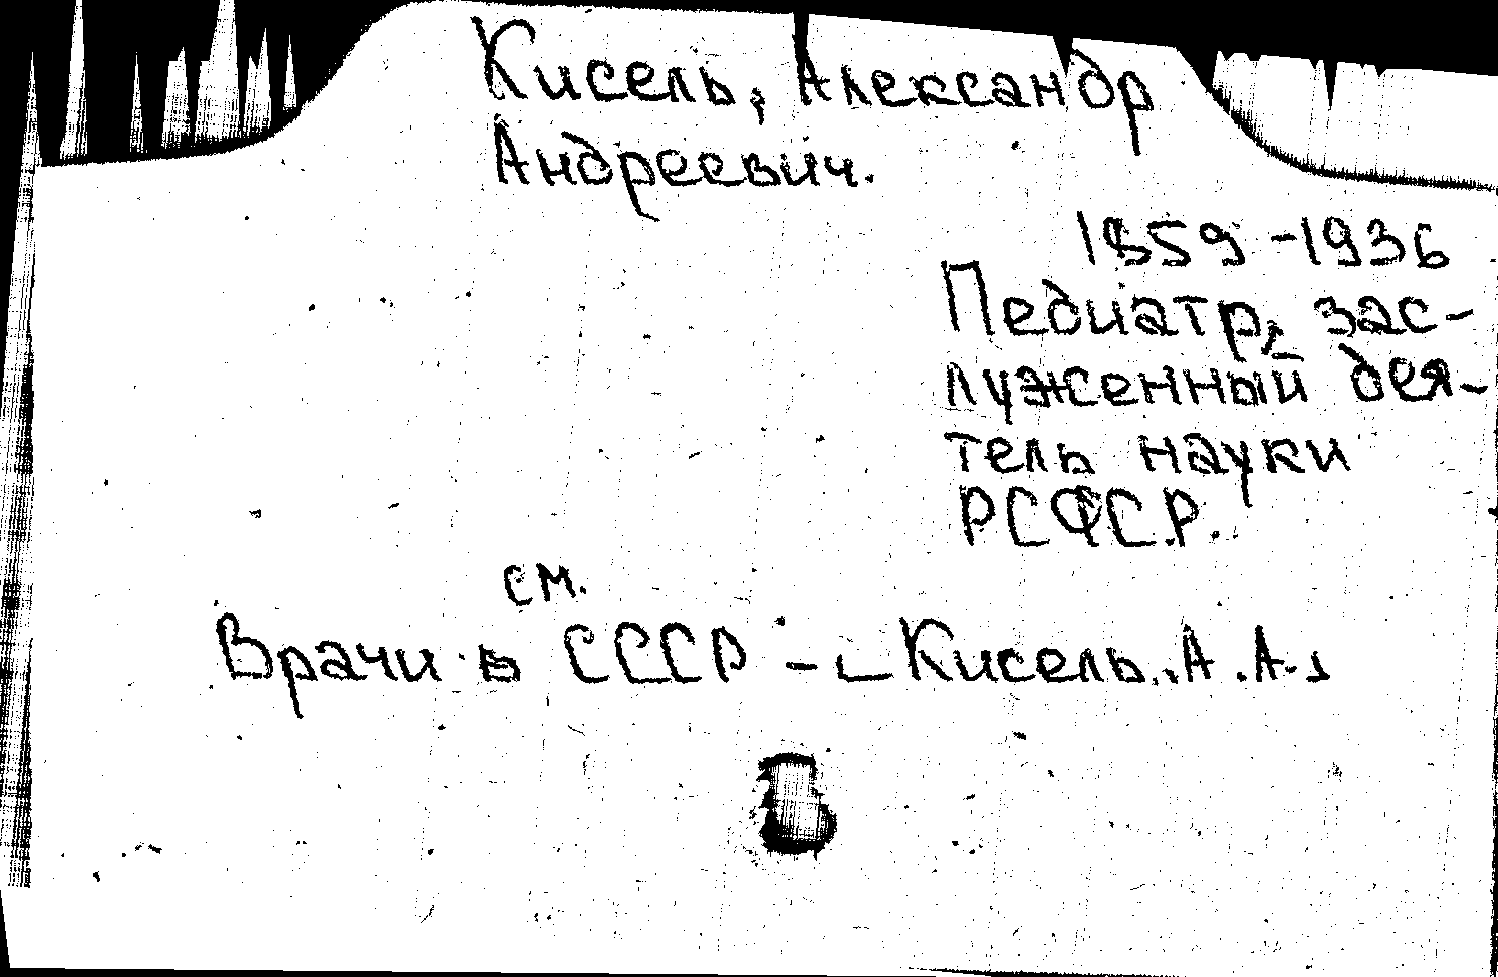 Кисель, Александр
Андреевич.
1859-1936
Педиатр, зас-
луженный дея-
тель науки
РСФСР.
см.
Врачи в СССР - Кисель.А.А.